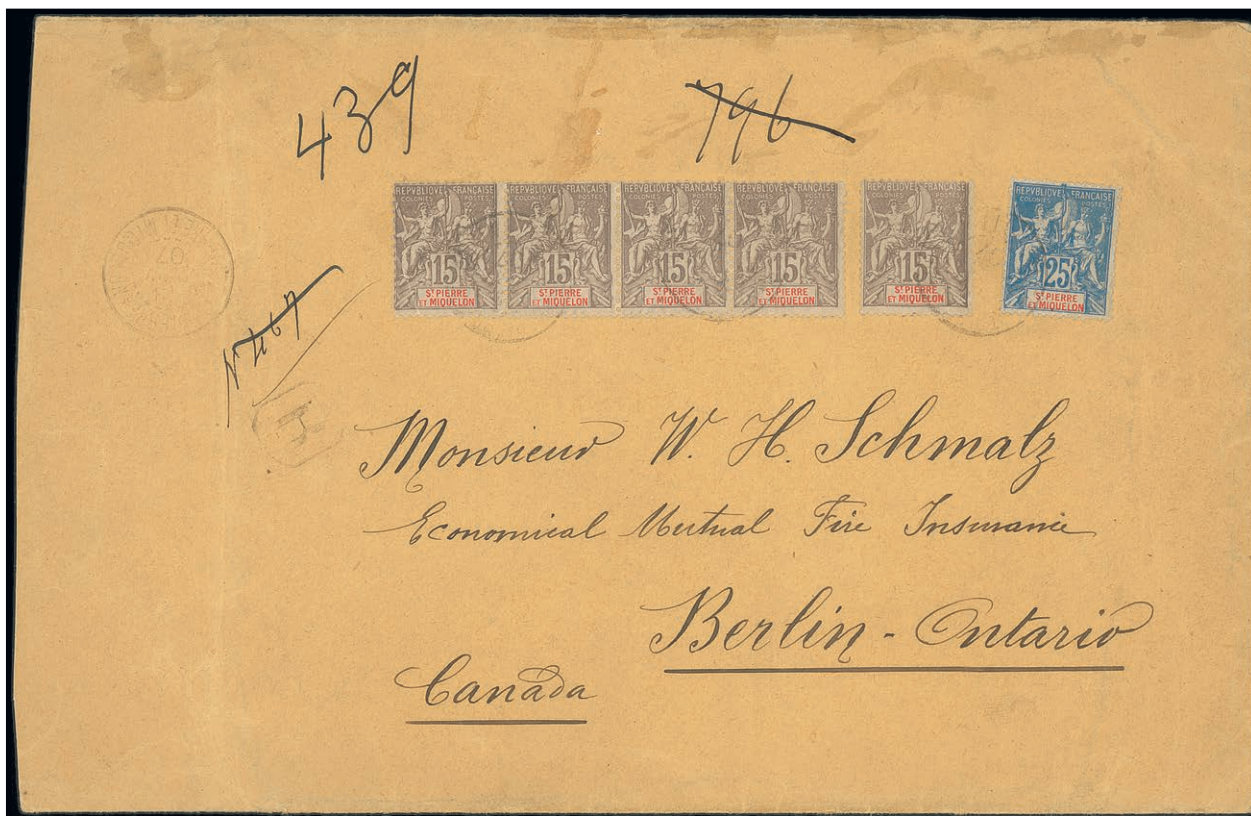 439
796
REPVBLIQVE FRANÇAISE
COLONIES POSTES
15
ST PIERRE
ET MIQUELON
REPVBLIQVE FRANÇAISE
COLONIES POSTES
15
ST PIERRE
ET MIQUELON
REPVBLIQVE FRANÇAISE
COLONIES POSTES
15
ST PIERRE
ET MIQUELON
REPVBLIQVE FRANÇAISE
COLONIES POSTES
15
ST PIERRE
ET MIQUELON
REPVBLIQVE FRANÇAISE
COLONIES POSTES
15
ST PIERRE
ET MIQUELON
REPVBLIQVE FRANÇAISE
COLONIES POSTES
25
ST PIERRE
ET MIQUELON
07
R
Monsieur W. H. Schmalz
Economical Mutual Fire Insurance
Berlin - Ontario
Canada